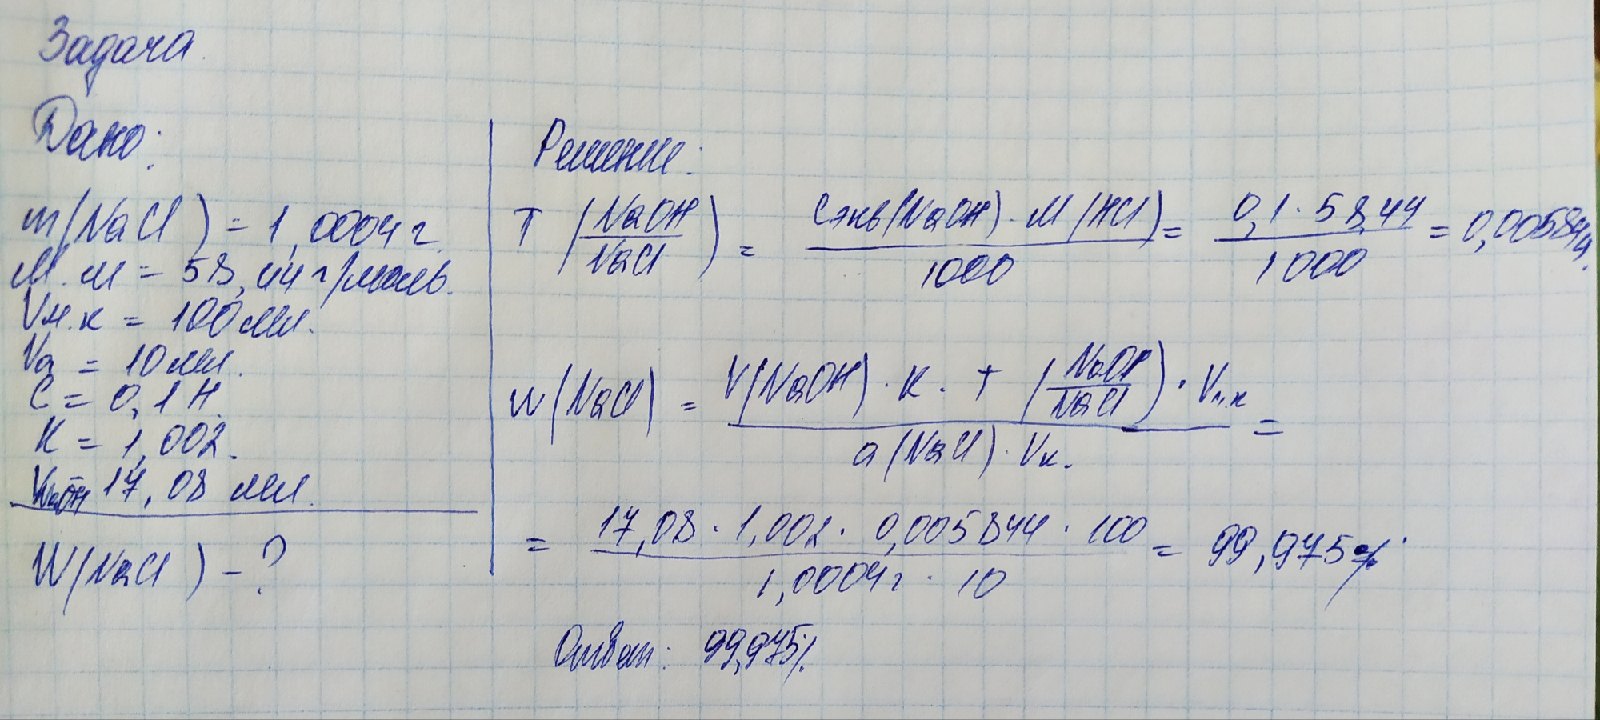 Задача.
Дано:
m(NaCl) = 1,0004 г.
М.м = 58,44 г/моль.
Vм.к = 100 мл.
Va = 10 мл.
C = 0,1 Н.
К = 1,002.
VNaOH 17,08 мл.
W(NaCl) - ?
Решение:
T (NaOH/NaCl) = Cэкв(NaOH) · M(HCl) / 1000 = 0,1 · 58,44 / 1000 = 0,005844.
W(NaCl) = V(NaOH) · К · T (NaOH/NaCl) · Vм.к / a(NaCl) · Vк. =
= 17,08 · 1,002 · 0,005844 · 100 / 1,0004 г · 10 = 99,975%
Ответ: 99,975%.